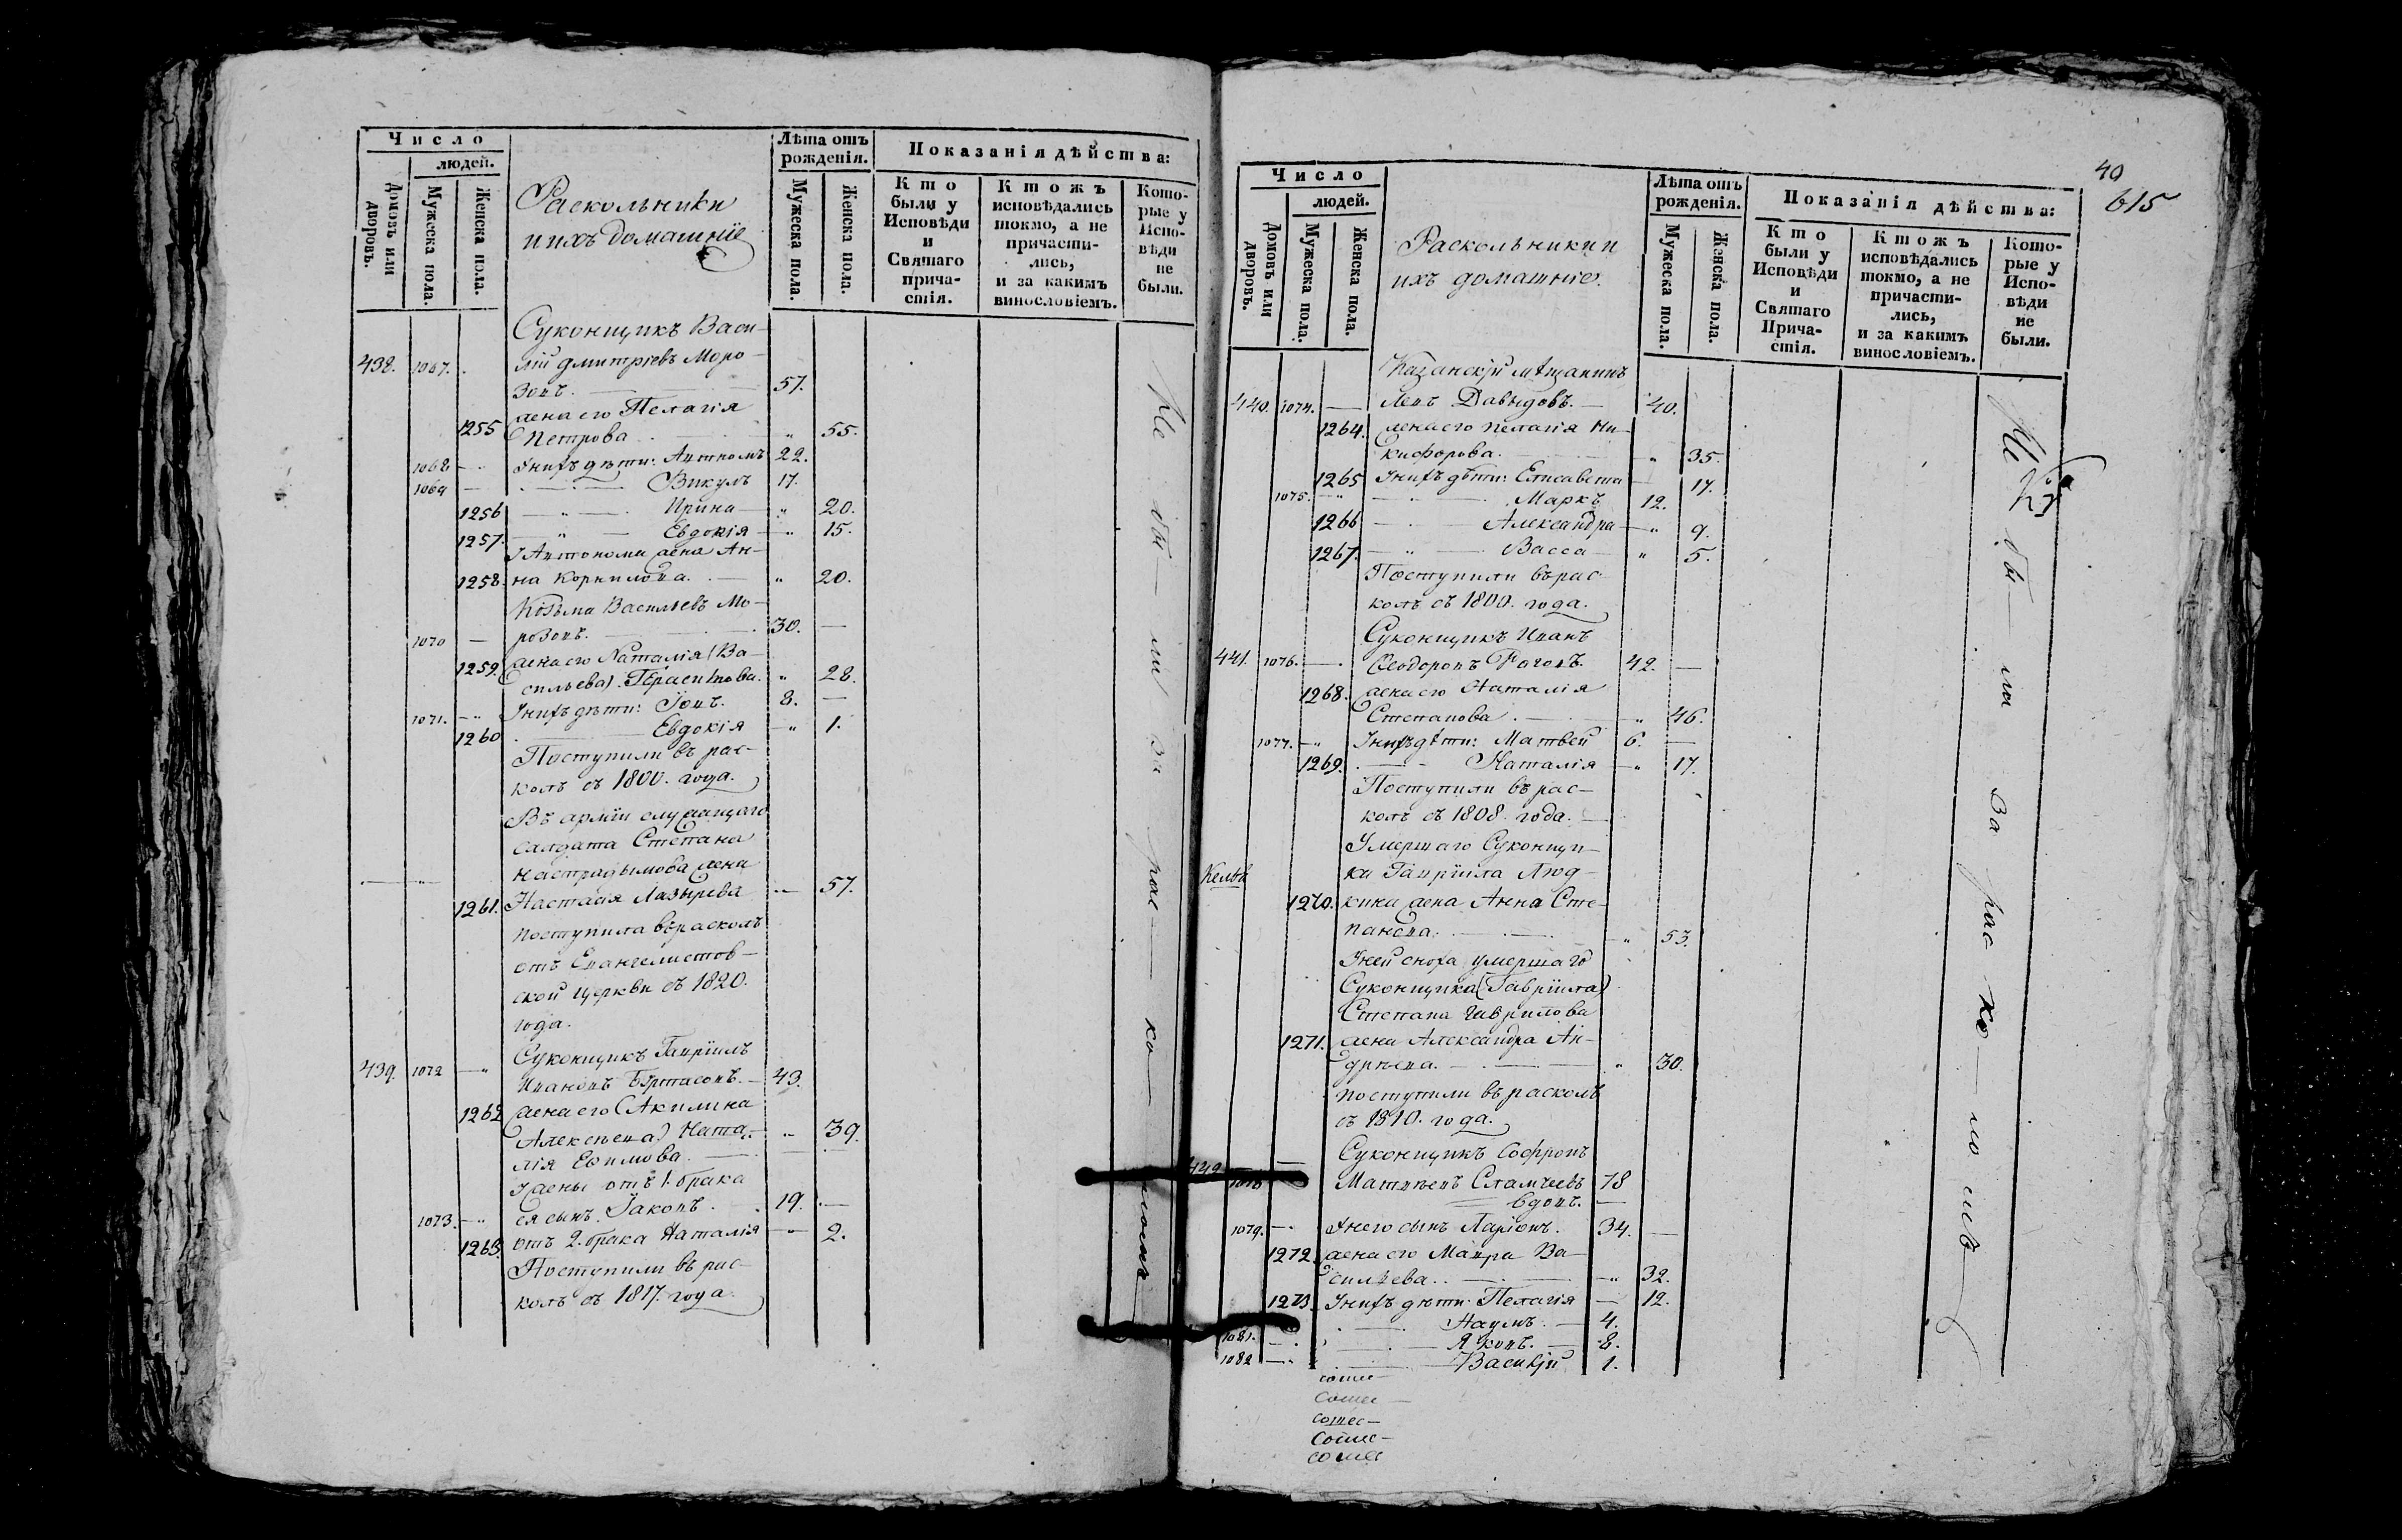 Число
людей.
Домовъ или дворовъ.
Мужеска пола.
Женска пола.
Раскольники
и ихъ домашніе
Лѣта отъ рожденія.
Мужеска пола.
Женска пола.
Показанія дѣйства:
Кто были у Исповѣди и Святаго причастія.
Ктожъ исповѣдались токмо, а не причастились, и за какимъ винословіемъ.
Которые у Исповѣди не были.
Суконщикъ Васи-
438. 1067. лій Дмитріевъ Моро-
зовъ. 57.
1255 жена его Пелагія
Петрова 55.
1068 У нихъ дѣти: Автномъ 22.
1069 Викулъ 17.
1256 Ирина 20.
1257. Евдокія 15.
У Автонома жена Ан-
1258. на Корнилова. 20.
Козьма Васильевъ Мо-
1070 розовъ. 30.
1259. жена его Наталія (Ва-
сильева). Герасимова. 28.
1071. У нихъ дѣти: Іовъ. 8.
1260 Евдокія 1.
Поступили въ рас-
колъ съ 1800. года.
Въ арміи служащаго
салдата Степана
жена
1261. Настасія Лазырева 57.
поступила въ расколъ
отъ Евангелистов-
ской церкви съ 1820.
года.
Суконщикъ Гавріилъ
439. 1072 Ивановъ 43.
1262 жена его (Акилина
Алексѣева) Ната-
лія Ефимова. 39.
У жены отъ 1. брака
1073. ея сынъ. Іаковъ. 19.
1263. отъ 2. брака Наталія 2.
Поступили въ рас-
колъ съ 1817. года.
Не бы— ли за рас— ко— ломъ
40
615
Число
людей.
Домовъ или дворовъ.
Мужеска пола.
Женска пола.
Раскольники и
ихъ домашніе.
Лѣта отъ рожденія.
Мужеска пола.
Женска пола.
Показанія дѣйства:
Кто были у Исповѣди и Святаго Причастія.
Ктожъ исповѣдались токмо, а не причастились, и за какимъ винословіемъ.
Которые у Исповѣди не были.
Казанскій мѣщанинъ
440. 1074. Левъ Давыдовъ. 40.
1264. жена его Пелагія Ни-
кифорова. 35.
1265 У нихъ дѣти: Елисавета 17.
1075. Маркъ 12.
1266 Александра 9.
1267. Васса 5.
Поступили въ рас-
колъ съ 1800. года.
Суконщикъ Иванъ
441. 1076. Ѳеодоровъ Роговъ. 42.
1268. жена его Наталія
Степанова. 46.
1077. У нихъ дѣти: Матвей 6.
1269. Наталія 17.
Поступили въ рас-
колъ съ 1808. года.
Умершаго Суконщи-
Келья ка Гавріила
1270. жена Анна Сте-
панова. 53.
У ней сноха умершаго
Суконщика (Гавріила)
Степана Гаврилова
1271. жена Александра Ан-
дрѣева. 30.
поступили въ расколъ
съ 1810. года.
Суконщикъ Софронъ
442 1078 Матвѣевъ 78
вдовъ.
1079. У него сынъ Ларіонъ. 34.
1272. жена его Мавра Ва-
сильева. 32.
1273. У нихъ дѣти: Пелагія 12.
Наумъ. 4.
1081. Яковъ. 8.
1082 Василій 1.
Не бы— ли за рас ко— ло мъ